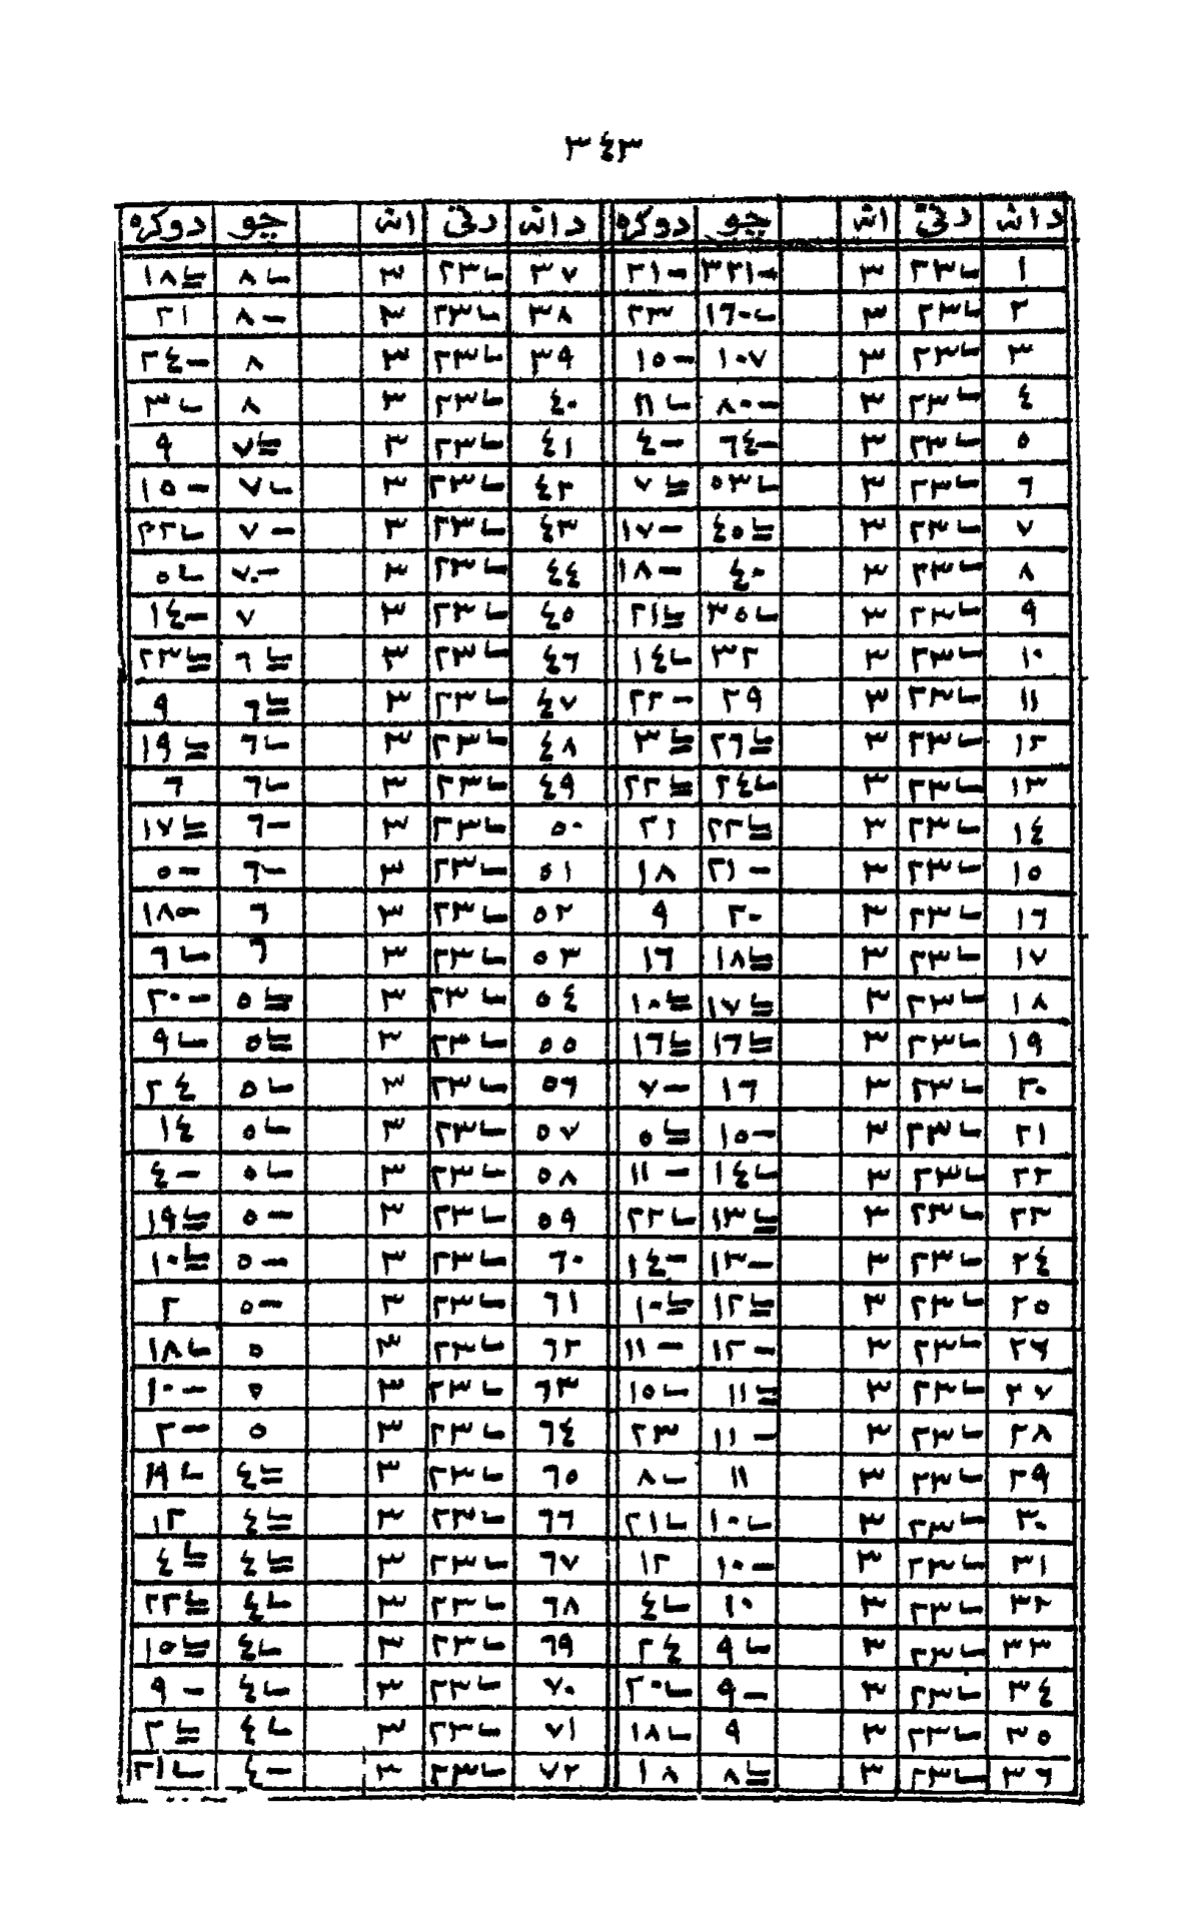 ٣٤٣
دانه رتي انه چو دوكره دانه رتي انه چو دوكره
١ ٢٣└ ٣ ٣٢١- ٢١- ٣٧ ٢٣└ ٣ ٨└ ١٨╘
٢ ٢٣└ ٣ ١٦٠└ ٢٣ ٣٨ ٢٣└ ٣ ٨- ٢١
٣ ٢٣└ ٣ ١٠٧ ١٥- ٣٩ ٢٣└ ٣ ٨ ٢٤-
٤ ٢٣└ ٣ ٨٠- ١١└ ٤٠ ٢٣└ ٣ ٨ ٣└
٥ ٢٣└ ٣ ٦٤- ٤- ٤١ ٢٣└ ٣ ٧╘ ٩
٦ ٢٣└ ٣ ٥٣└ ٧╘ ٤٢ ٢٣└ ٣ ٧└ ١٥-
٧ ٢٣└ ٣ ٤٥╘ ١٧- ٤٣ ٢٣└ ٣ ٧- ٢٢└
٨ ٢٣└ ٣ ٤٠ ١٨- ٤٤ ٢٣└ ٣ ٧- ٥└
٩ ٢٣└ ٣ ٣٥└ ٢١╘ ٤٥ ٢٣└ ٣ ٧ ١٤-
١٠ ٢٣└ ٣ ٣٢ ١٤└ ٤٦ ٢٣└ ٣ ٦╘ ٢٣╘
١١ ٢٣└ ٣ ٢٩ ٢٢- ٤٧ ٢٣└ ٣ ٦╘ ٩
١٢ ٢٣└ ٣ ٢٦╘ ٣╘ ٤٨ ٢٣└ ٣ ٦└ ١٩╘
١٣ ٢٣└ ٣ ٢٤└ ٢٢╘ ٤٩ ٢٣└ ٣ ٦└ ٦
١٤ ٢٣└ ٣ ٢٢╘ ٢١ ٥٠ ٢٣└ ٣ ٦- ١٧╘
١٥ ٢٣└ ٣ ٢١- ١٨ ٥١ ٢٣└ ٣ ٦- ٥-
١٦ ٢٣└ ٣ ٢٠ ٩ ٥٢ ٢٣└ ٣ ٦ ١٨-
١٧ ٢٣└ ٣ ١٨╘ ١٦ ٥٣ ٢٣└ ٣ ٦ ٦└
١٨ ٢٣└ ٣ ١٧╘ ١٠╘ ٥٤ ٢٣└ ٣ ٥╘ ٢٠-
١٩ ٢٣└ ٣ ١٦╘ ١٦╘ ٥٥ ٢٣└ ٣ ٥╘ ٩└
٢٠ ٢٣└ ٣ ١٦ ٧- ٥٦ ٢٣└ ٣ ٥└ ٢٤
٢١ ٢٣└ ٣ ١٥- ٥╘ ٥٧ ٢٣└ ٣ ٥└ ١٤
٢٢ ٢٣└ ٣ ١٤└ ١١- ٥٨ ٢٣└ ٣ ٥└ ٤-
٢٣ ٢٣└ ٣ ١٣╘ ٢٢└ ٥٩ ٢٣└ ٣ ٥- ١٩╘
٢٤ ٢٣└ ٣ ١٣- ١٤- ٦٠ ٢٣└ ٣ ٥- ١٠╘
٢٥ ٢٣└ ٣ ١٢╘ ١٠╘ ٦١ ٢٣└ ٣ ٥- ٢
٢٦ ٢٣└ ٣ ١٢- ١١- ٦٢ ٢٣└ ٣ ٥ ١٨└
٢٧ ٢٣└ ٣ ١١╘ ١٥└ ٦٣ ٢٣└ ٣ ٥ ١٠-
٢٨ ٢٣└ ٣ ١١- ٢٣ ٦٤ ٢٣└ ٣ ٥ ٢-
٢٩ ٢٣└ ٣ ١١ ٨└ ٦٥ ٢٣└ ٣ ٤╘ ١٩└
٣٠ ٢٣└ ٣ ١٠└ ٢١└ ٦٦ ٢٣└ ٣ ٤╘ ١٢
٣١ ٢٣└ ٣ ١٠- ١٢ ٦٧ ٢٣└ ٣ ٤╘ ٤╘
٣٢ ٢٣└ ٣ ١٠ ٤└ ٦٨ ٢٣└ ٣ ٤└ ٢٢╘
٣٣ ٢٣└ ٣ ٩└ ٢٤ ٦٩ ٢٣└ ٣ ٤└ ١٥╘
٣٤ ٢٣└ ٣ ٩- ٢٠└ ٧٠ ٢٣└ ٣ ٤└ ٩-
٣٥ ٢٣└ ٣ ٩ ١٨└ ٧١ ٢٣└ ٣ ٤└ ٢╘
٣٦ ٢٣└ ٣ ٨╘ ١٨ ٧٢ ٢٣└ ٣ ٤- ٢١└